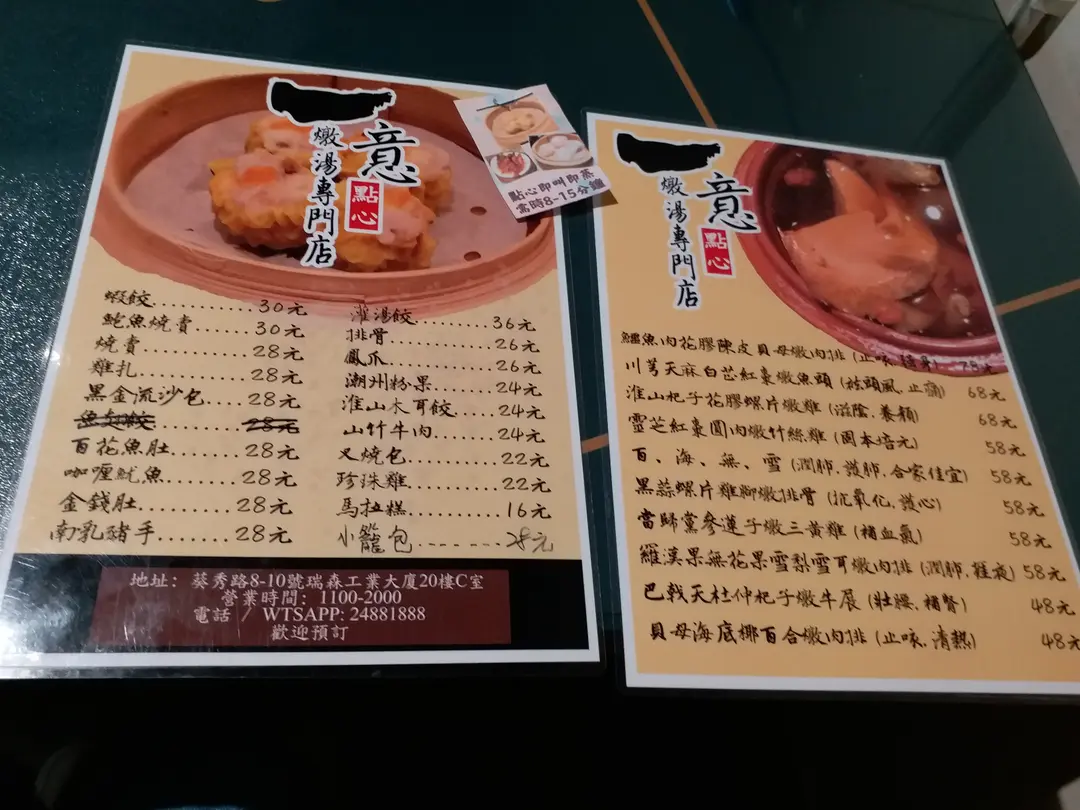 一意
點心
燉湯專門店
蝦餃............30元
鮑魚燒賣......30元
燒賣............28元
雞扎............28元
黑金流沙包...28元
28元
百花魚肚......28元
咖喱魷魚......28元
金錢肚.........28元
南乳豬手......28元
灌湯餃.........36元
排骨............26元
鳳爪............26元
潮州粉果......24元
淮山木耳餃...24元
山竹牛肉......24元
叉燒包.........22元
珍珠雞.........22元
馬拉糕.........16元
小籠包.........28元
地址: 葵秀路8-10號瑞森工業大廈20樓C室
營業時間: 1100-2000
電話 / WTSAPP: 24881888
歡迎預訂
點心即叫即蒸
需時8-15分鐘
一意
點心
燉湯專門店
鱷魚肉花膠陳皮貝母燉肉排 (止咳 78元
川芎天麻白芷紅棗燉魚頭 (祛頭風, 止痛) 68元
淮山杞子花膠螺片燉雞 (滋陰, 養顏) 68元
靈芝紅棗圓肉燉竹絲雞 (固本培元) 58元
百、海、無、雪 (潤肺, 護肺, 合家佳宜) 58元
黑蒜螺片雞腳燉排骨 (抗氧化, 護心) 58元
當歸黨參蓮子燉三黃雞 (補血氣) 58元
羅漢果無花果雪梨雪耳燉肉排 (潤肺, 夜) 58元
巴戟天杜仲杞子燉牛𦟌 (壯腰, 補腎) 48元
貝母海底椰百合燉肉排 (止咳, 清熱) 48元